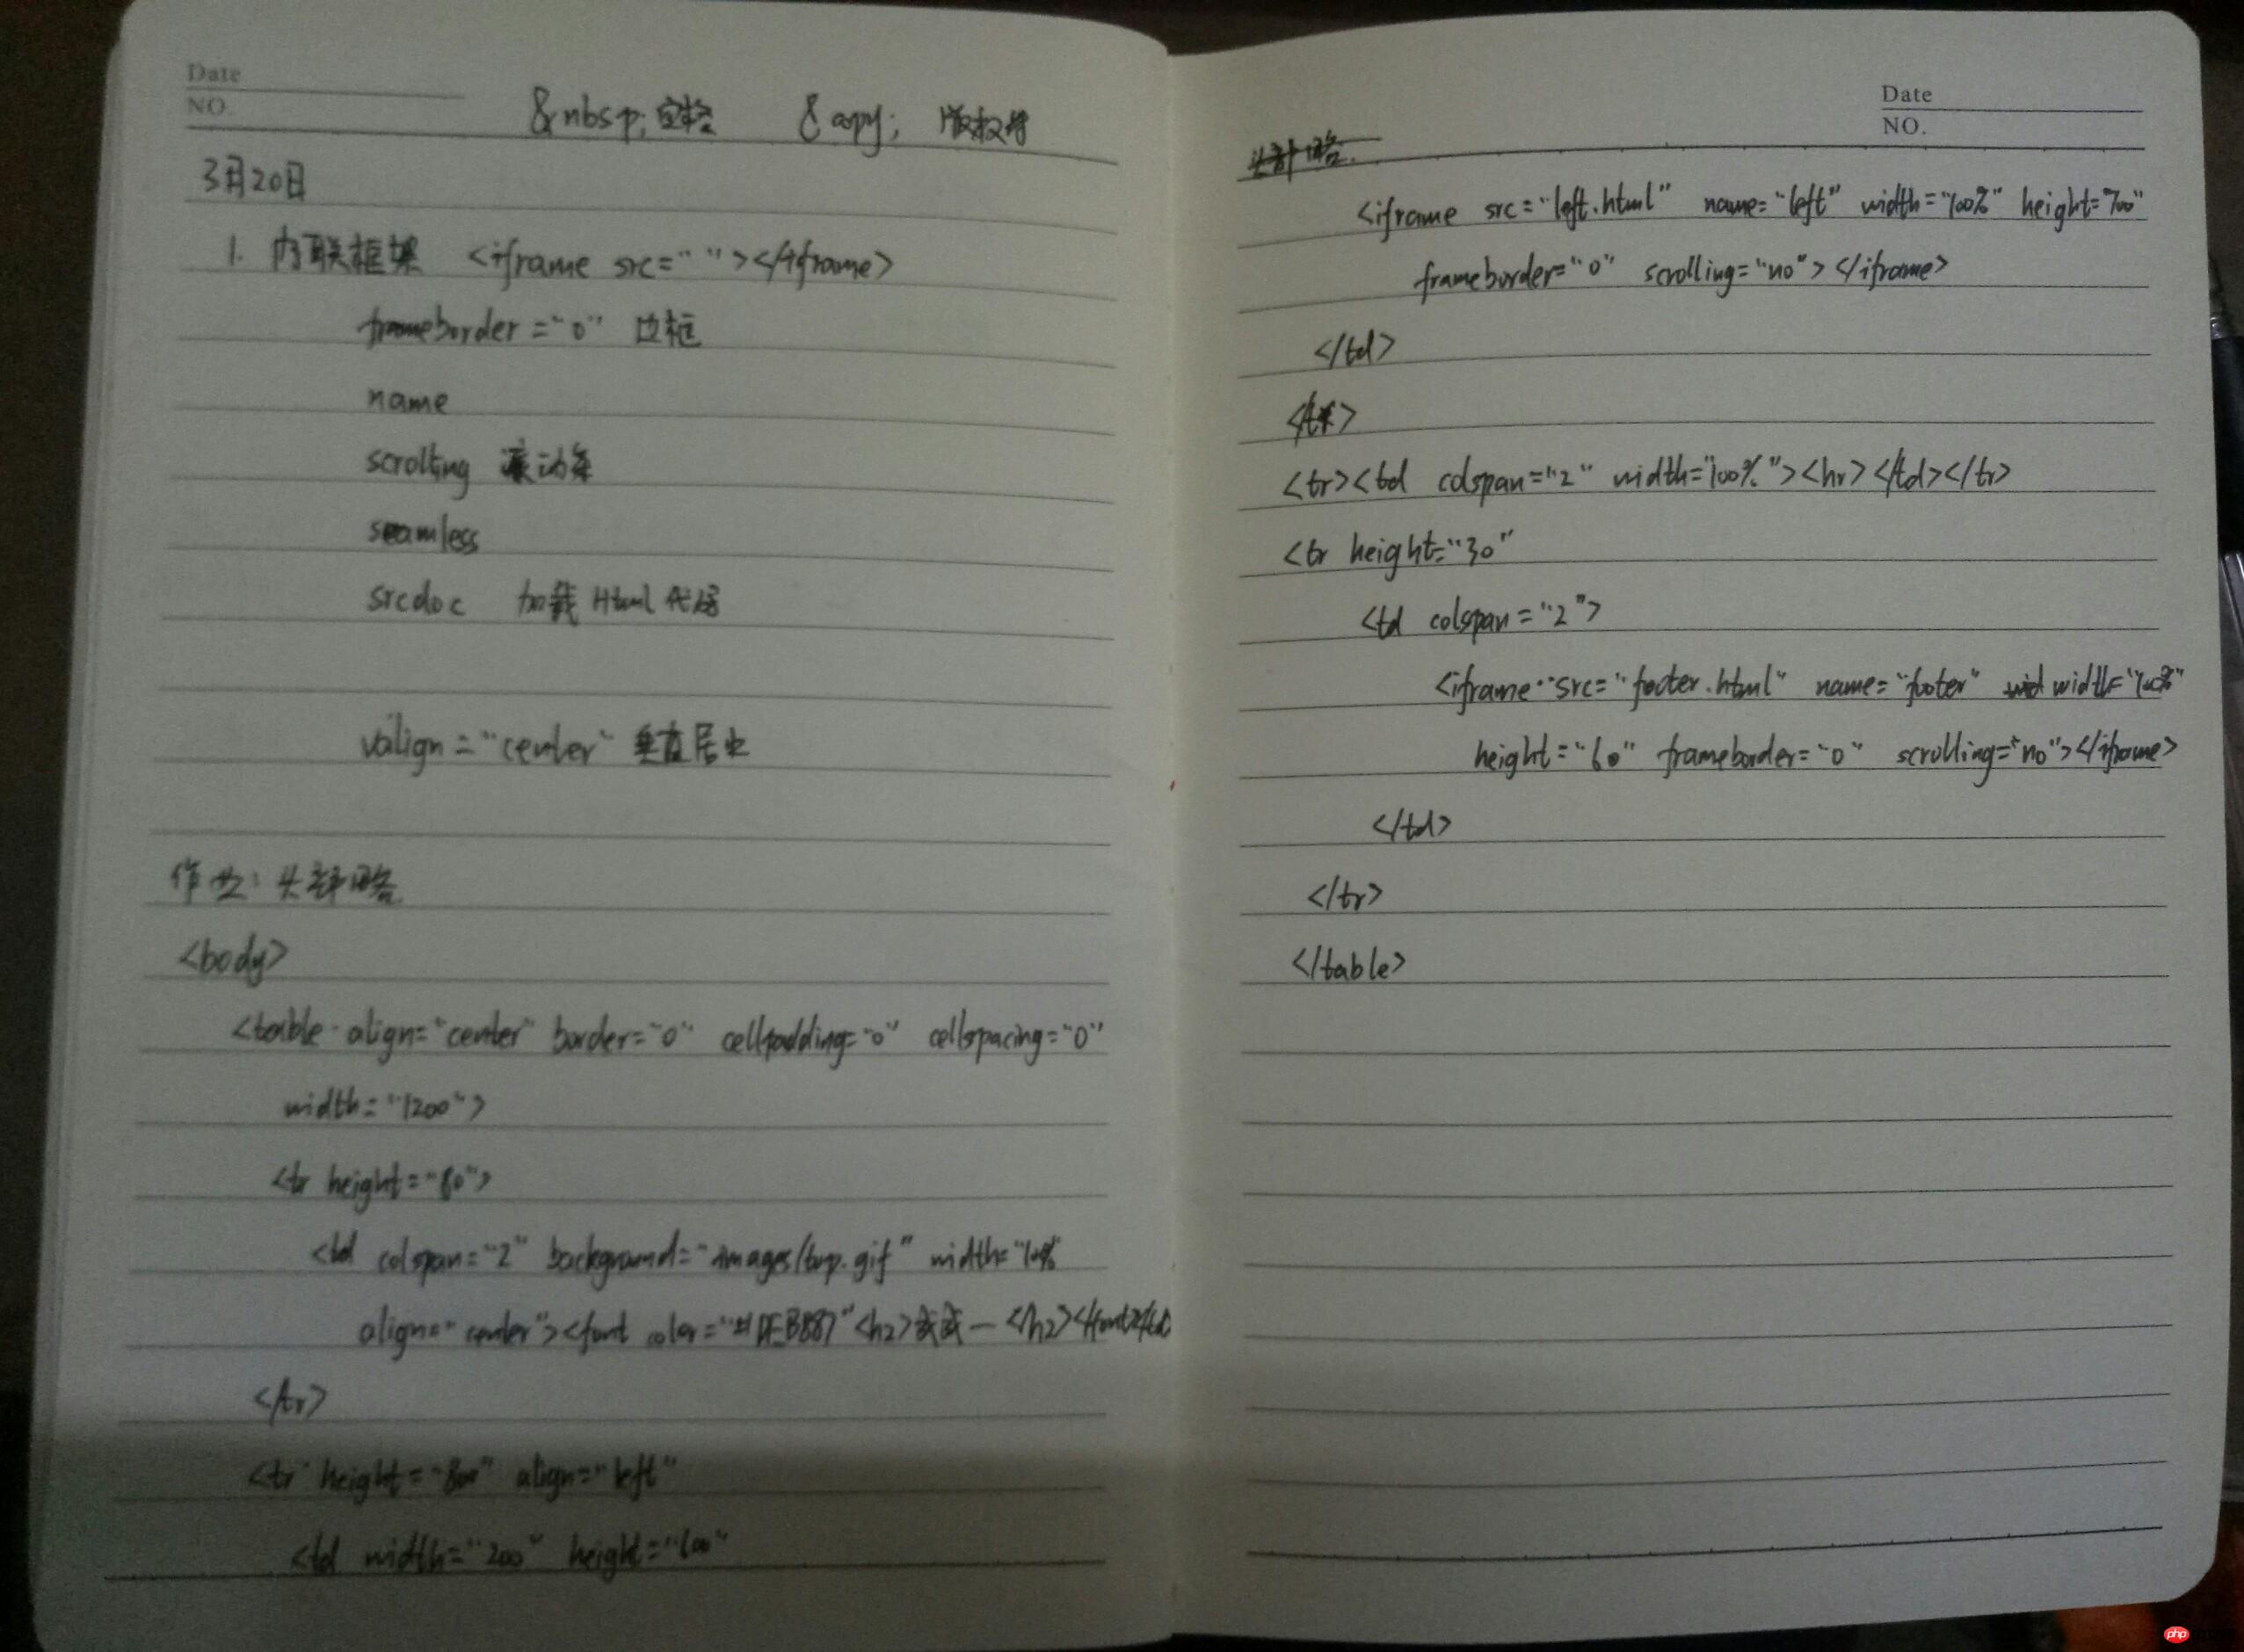 Date
NO.
&nbsp; 空格 &copy; 版权符
3月20日
1. 内联框架 <iframe src=" "></iframe>
frameborder="0" 边框
name
scrolling 滚动条
seamless
srcdoc 加载Html代码
valign="center" 垂直居中
作业: 头部略.
<body>
<table align="center" border="0" cellpadding="0" cellspacing="0"
width="1200">
<tr height="80">
<td colspan="2" background="images/top.gif" width="100%
align="center"><font color="#DEB887"<h2>试试一<h2></font></td
</tr>
<tr height="800" align="left"
<td width="200" height="600"
Date
NO.
头部略.
<iframe src="left.html" name="left" width="100%" height=700"
frameborder="0" scrolling="no"></iframe>
</td>
</tr>
<tr><td colspan="2" width="100%"><hr></td></tr>
<tr height="30"
<td colspan="2">
<iframe src="footer.html" name="footer" width="100%"
height="60" frameborder="0" scrolling="no"></iframe>
</td>
</tr>
</table>
php